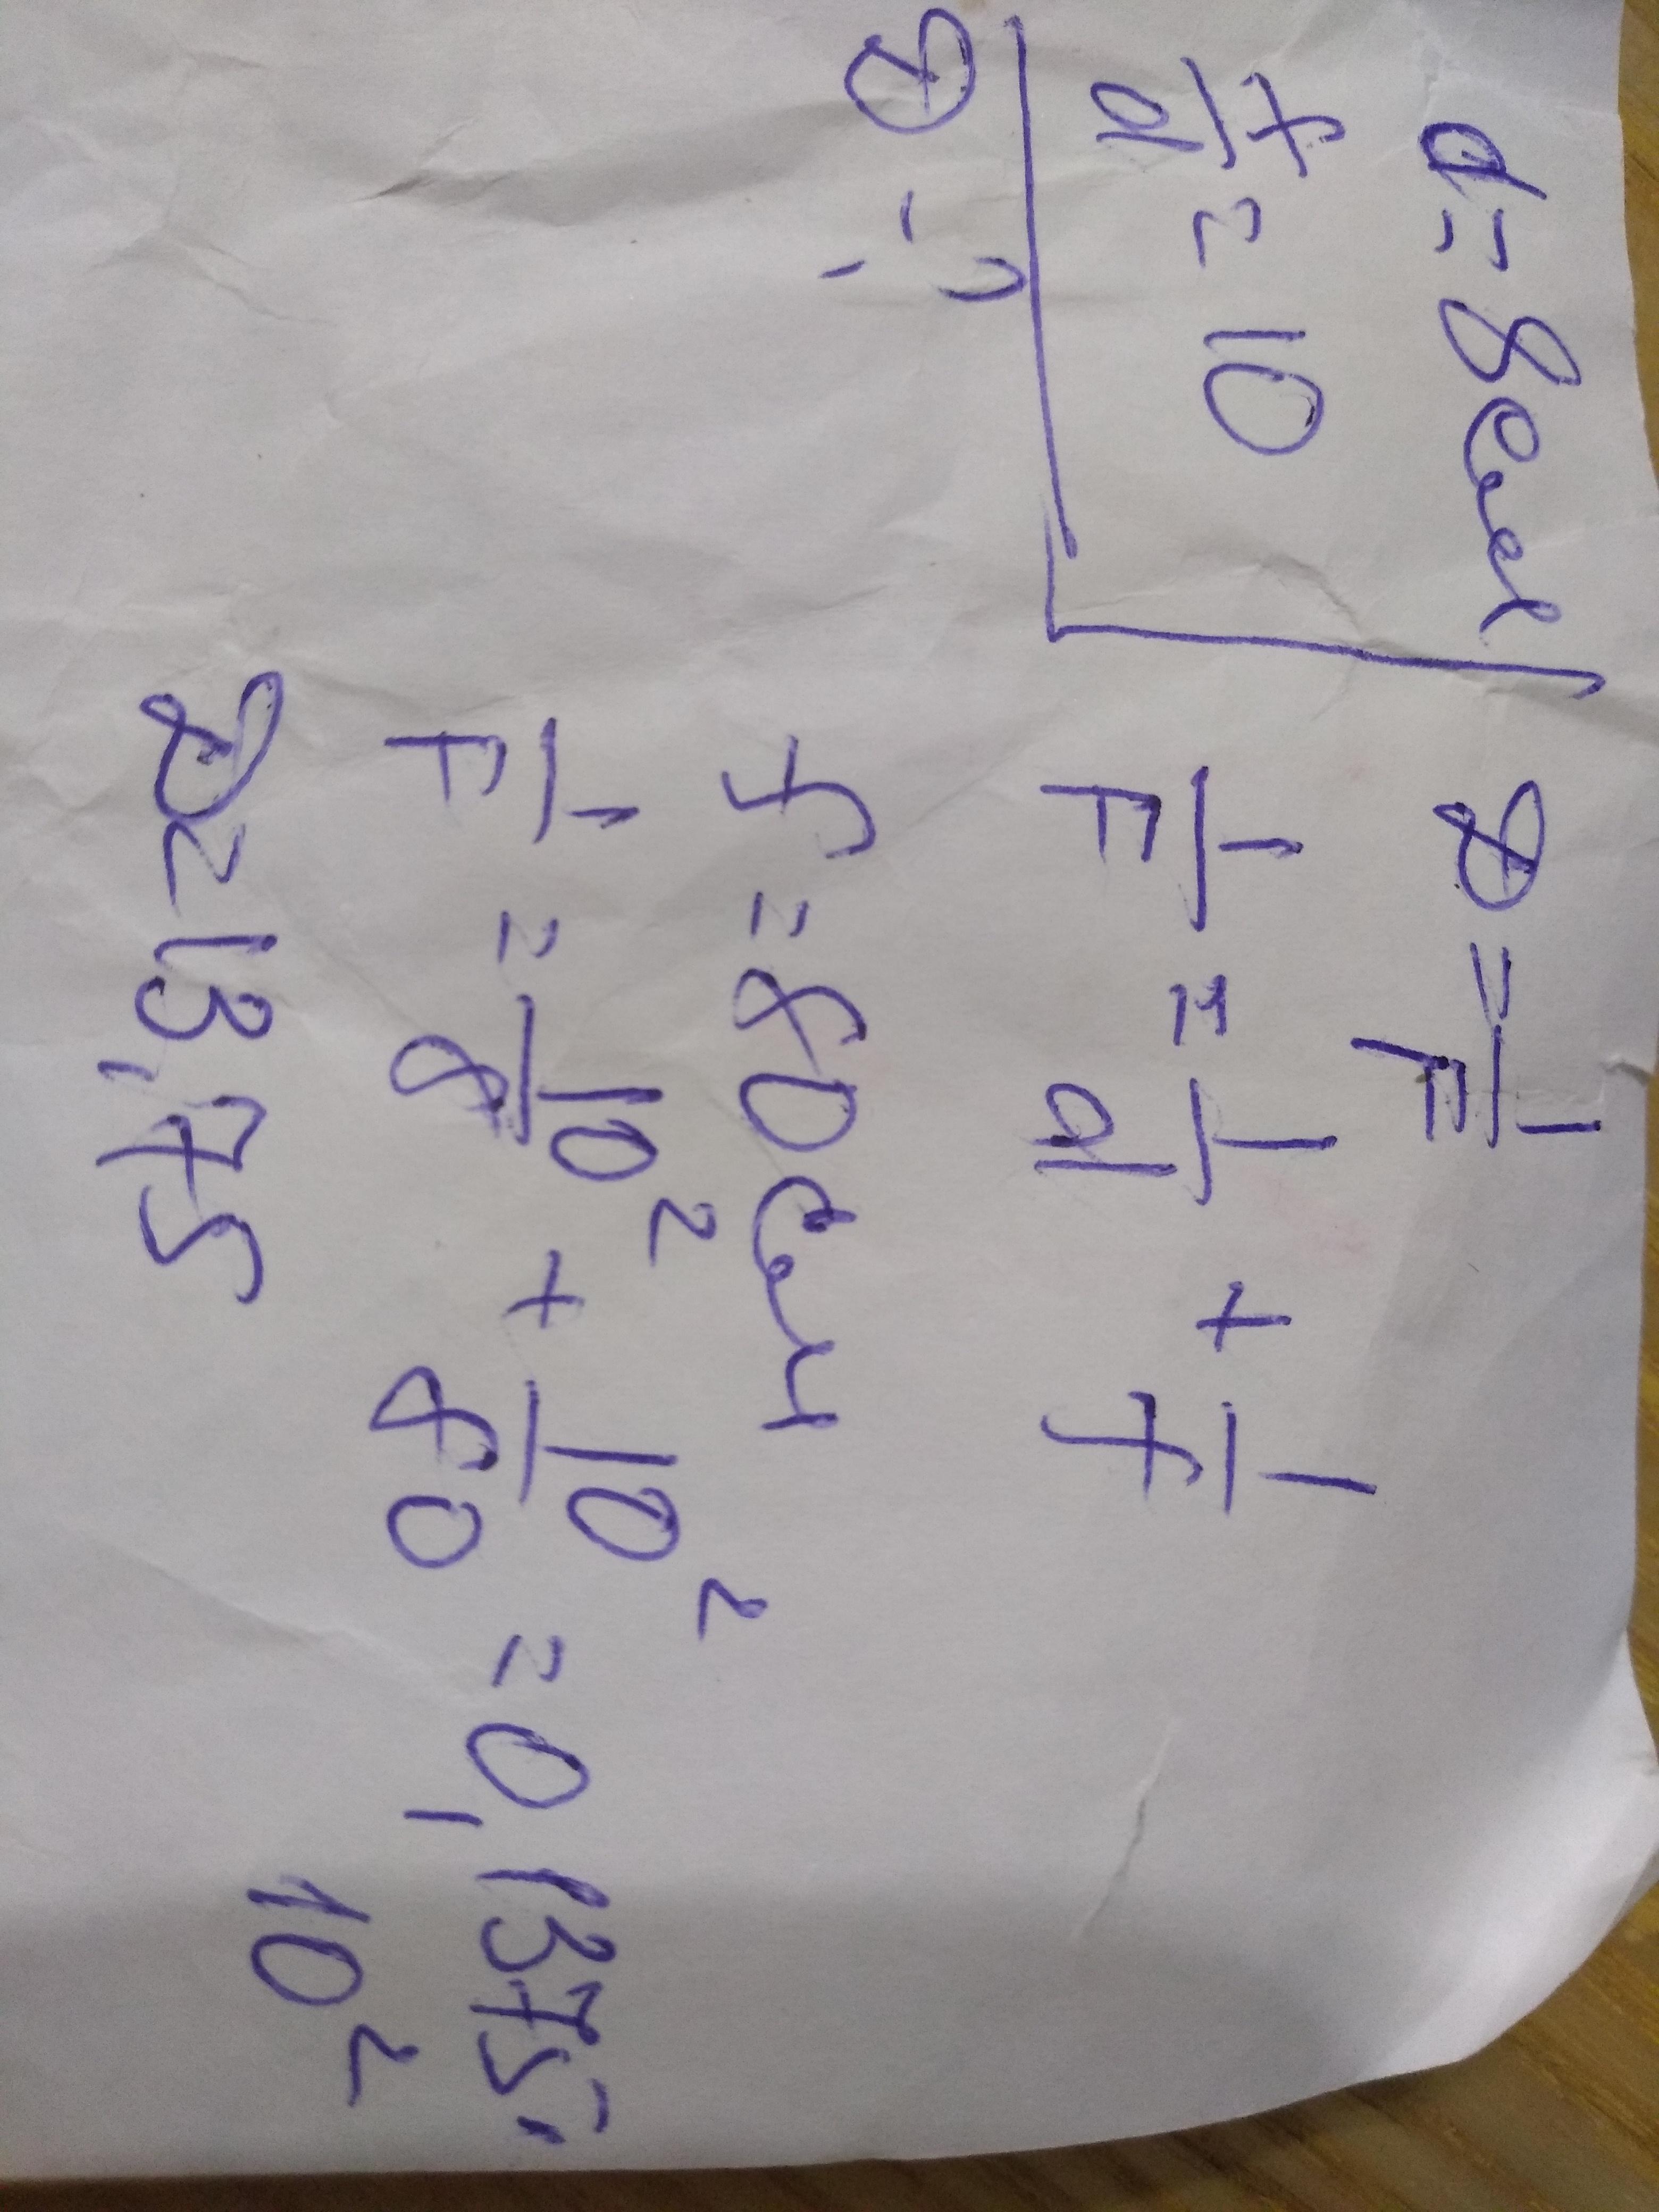 d = 8 см
f/d = 10
D = ?
D = 1/F
1/F = 1/d + 1/f
f = 80 см
1/F = 10²/8 + 10²/80 = 0,1375 ·
10²
D = 13,75